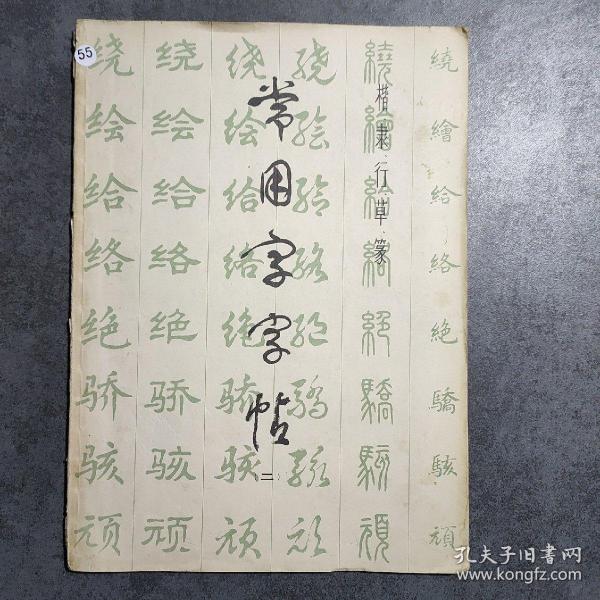 55
常用字字帖
二
楷·隶·行·草·篆
繞繪給絡絶驕駭頑
繞繪給絡絶驕駭頑
绕绘给络绝骄骇顽
绕绘给络绝骄骇顽
绕绘给络绝骄骇顽
绕绘给络绝骄骇顽
孔夫子旧书网
www.kongfz.com